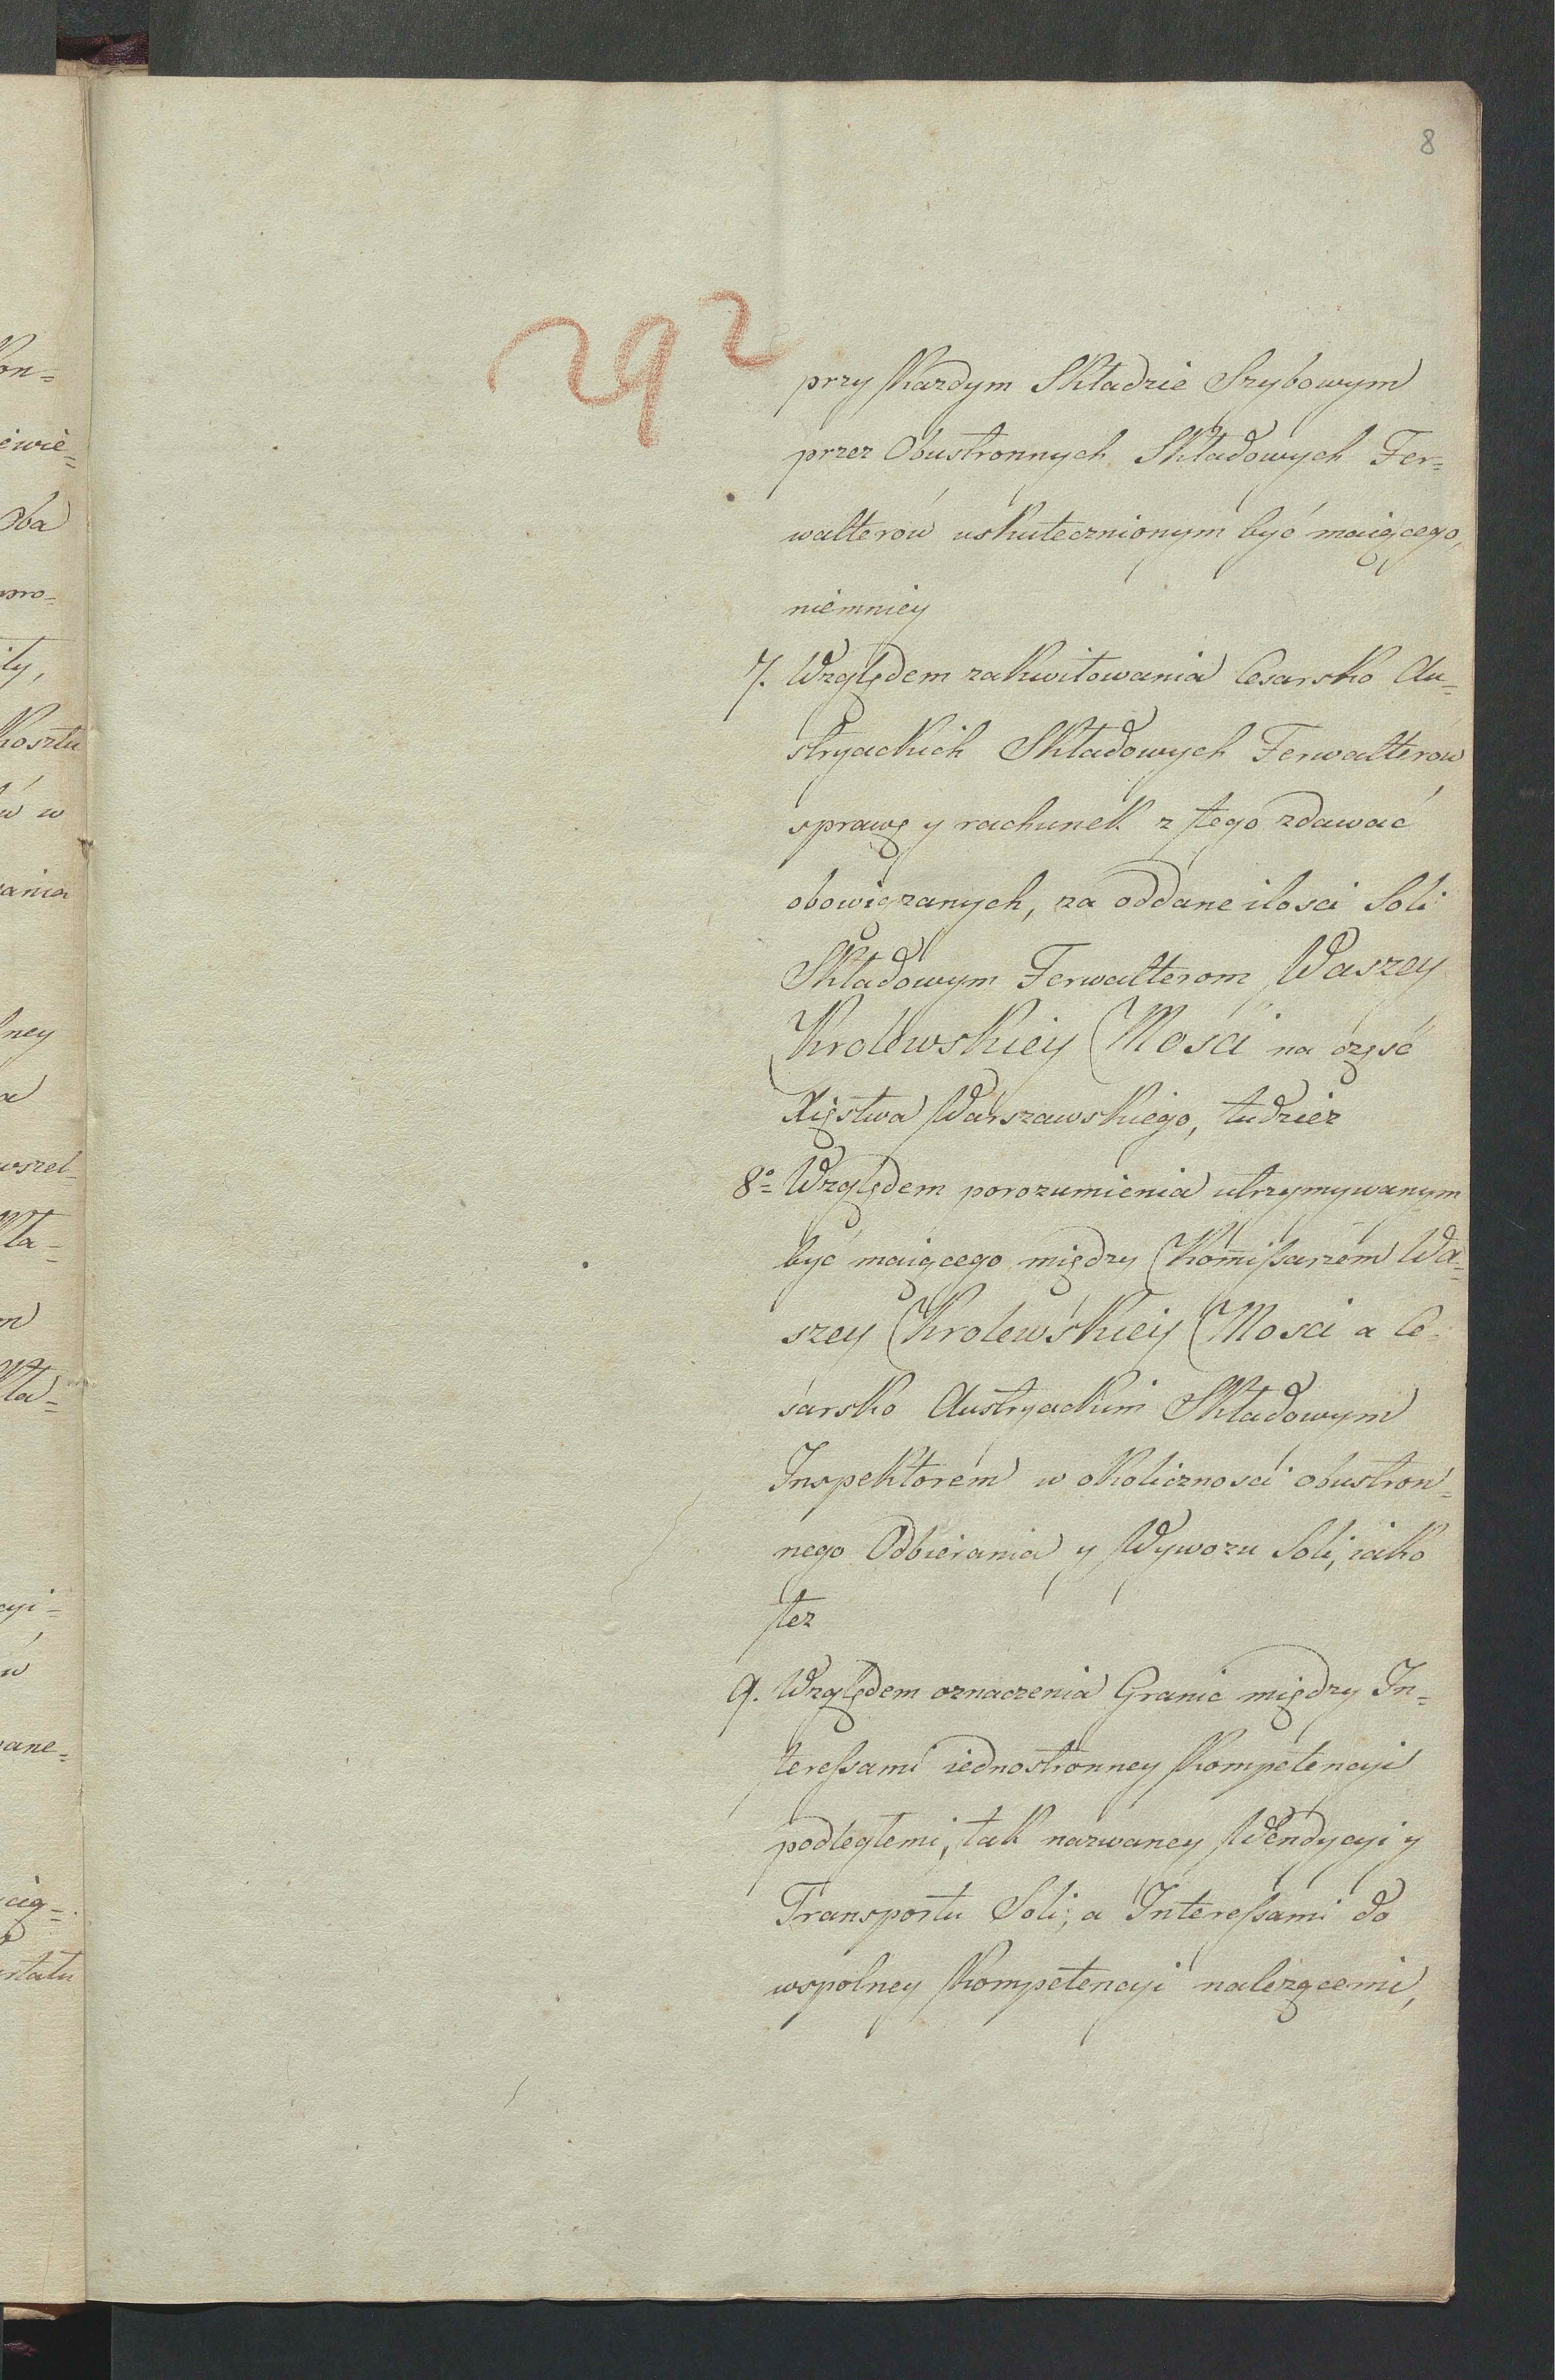 8
292
przy Kazdym Składzie Szybowym
przez Obustronnych Składowych Fer=
walterów uskutecznionym być maiącego,
niemniey
7. Względem zakwitowania Cesarsko Au=
stryackich Składowych Ferwalterów
sprawę y rachunek z tego zdawać
obowiązanych, za oddane ilosci Soli
Składowym Ferwalterom Waszey
Krolewskiey Mości na część
Xięstwa Warszawskiego, tudzież
8o= Względem porozumienia utrzymywanym
być maiącego między Kom̄issarzem Wa=
szey Krolewskiey Mosci a Ce=
sarsko Austryackim Składowym
Inspektorem w okolicznosci obustron=
nego Odbierania y Wywozu Soli, iako
tez
9. Względem oznaczenia Granic między In=
teressami iednostronney Kompetencyi
podległemi, tak nazwaney Wendycyi y
Transportu Soli; a Interessami do
wspolney Kompetencyi nalezącemi,